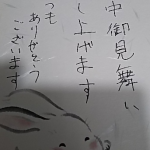 中御見舞い
し上げます
つも
ありがとう
ございます